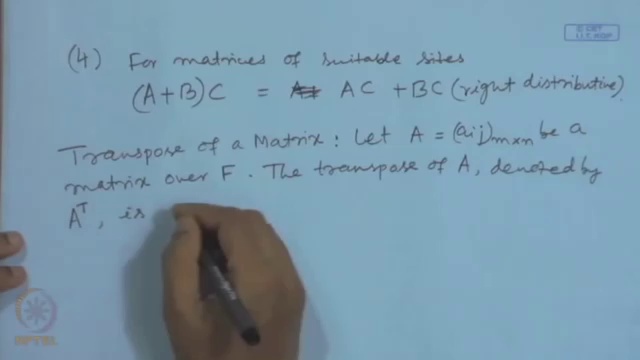 © CET
I.I.T. KGP
(4) For matrices of suitable sites
(A+B)C = AC + BC (right distributive).
Transpose of a Matrix : Let A = (aij)m×n be a
matrix over F. The transpose of A, denoted by
A^T, is
NPTEL